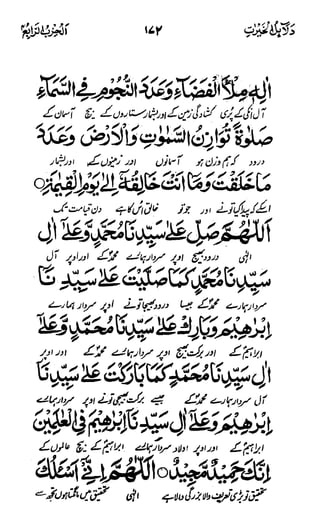 دلائل الخیرات ۱۷۲ الحزب الرابع
اٰلِهٖ مِلْأَ الْفَضَآءِ وَعَدَدَ النُّجُوْمِ فِي السَّمَآءِ
آل انکی کے پُری کشادگی زمین کے اور بشمار ستاروں کے بیچ آسمان کے
صَلٰوةً تُوَازِنُ السَّمٰوٰتِ وَالْاَرْضَ وَعَدَدَ
درود کہ ہم وزن ہو آسمانوں اور زمینوں کے اور بشمار
مَا خَلَقْتَ وَمَآ اَنْتَ خَالِقُهٗ اِلٰى يَوْمِ الْقِيٰمَةِ ○
اسکے کہ پیدا کیا تونے اور جو تو خالق اُس کا ہے دن قیامت تک
اَللّٰهُمَّ صَلِّ عَلٰى سَيِّدِنَا مُحَمَّدٍ وَّعَلٰٓى اٰلِ
الٰہی درود بھیج اوپر سردار ہمارے محمدؐ کے اور آل
سَيِّدِنَا مُحَمَّدٍ كَمَا صَلَّيْتَ عَلٰى سَيِّدِنَا
سردار ہمارے محمدؐ کے جیسا درود بھیجا تونے اوپر سردار ہمارے
اِبْرٰهِيْمَ وَبَارِكْ عَلٰى سَيِّدِنَا مُحَمَّدٍ وَّعَلٰٓى
ابراہیم کے اور برکت بھیج اوپر سردار ہمارے محمدؐ کے اور اوپر
اٰلِ سَيِّدِنَا مُحَمَّدٍ كَمَا بَارَكْتَ عَلٰى سَيِّدِنَا
آل سردار ہمارے محمدؐ کے جیسے برکت بھیجی تونے اوپر سردار ہمارے
اِبْرٰهِيْمَ وَعَلٰٓى اٰلِ سَيِّدِنَآ اِبْرٰهِيْمَ فِي الْعٰلَمِيْنَ
ابراہیم کے اور اوپر اولاد سردار ہمارے ابراہیم کے بیچ عالموں کے
اِنَّكَ حَمِيْدٌ مَّجِيْدٌ ○ اَللّٰهُمَّ اِنِّيْٓ اَسْئَلُكَ
تحقیق تو بڑی تعریف والا بزرگی والا ہے الٰہی تحقیق میں مانگتا ہوں تجھ سے